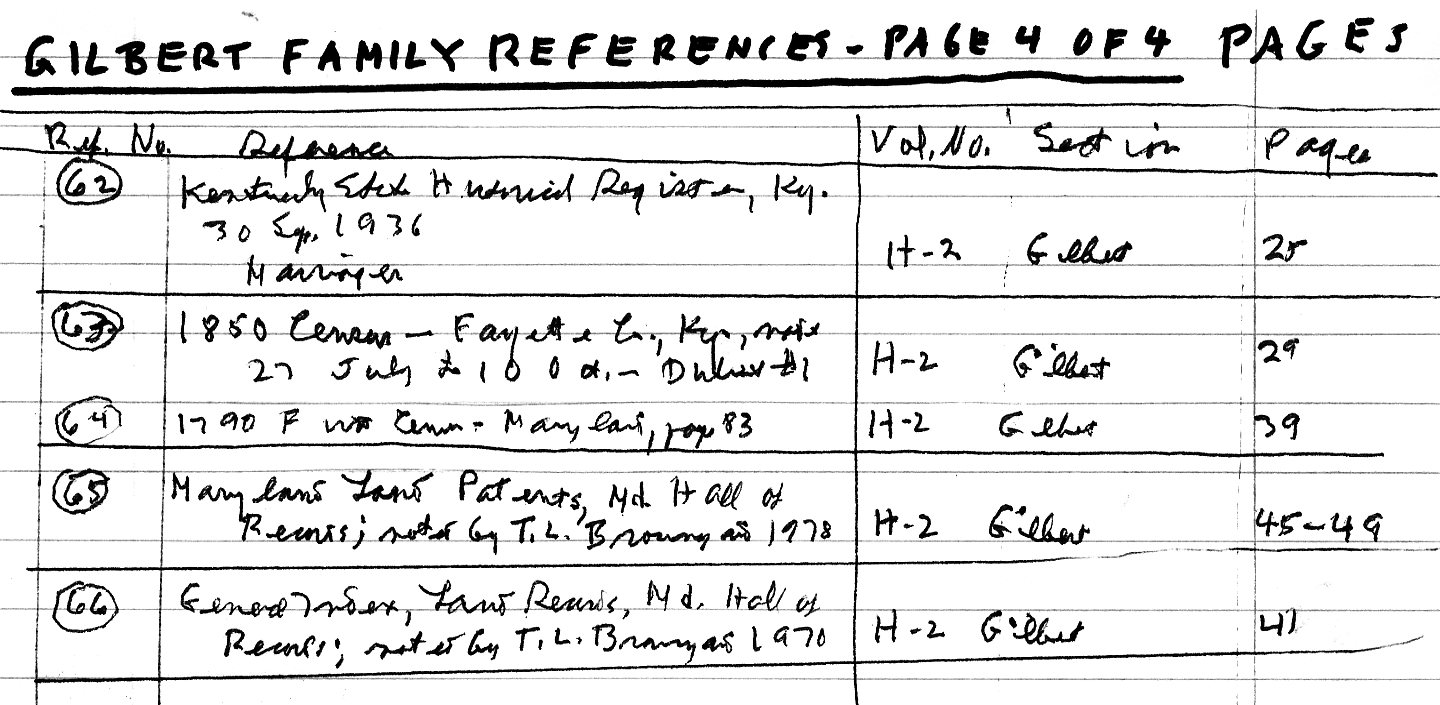 GILBERT FAMILY REFERENCES - PAGE 4 OF 4 PAGES
Ref. No. Reference Vol. No. Section Pages
62 Kentucky State Historical Register, Ky.
30 Sep. 1936
Marriages
H-2 Gilbert 25
63 1850 Census - Fayette Co., Ky.,
27 July District #1
H-2 Gilbert 29
64 1790 Census - Maryland, page 83 H-2 Gilbert 39
65 Maryland Land Patents, Md. Hall of
Records; noted by T. L. Brownyard 1978 H-2 Gilbert 45-49
66 General Index, Land Records, Md. Hall of
Records; noted by T. L. Brownyard 1970 H-2 Gilbert